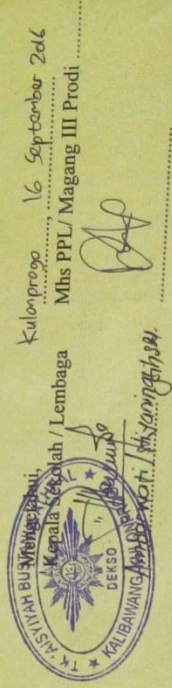 Kulonprogo, 16 September 2016
Mengetahui,
Kepala Sekolah / Lembaga
Mhs PPL/ Magang III Prodi
TK 'AISYIYAH BUS
DEKSO
KALIBAWANG